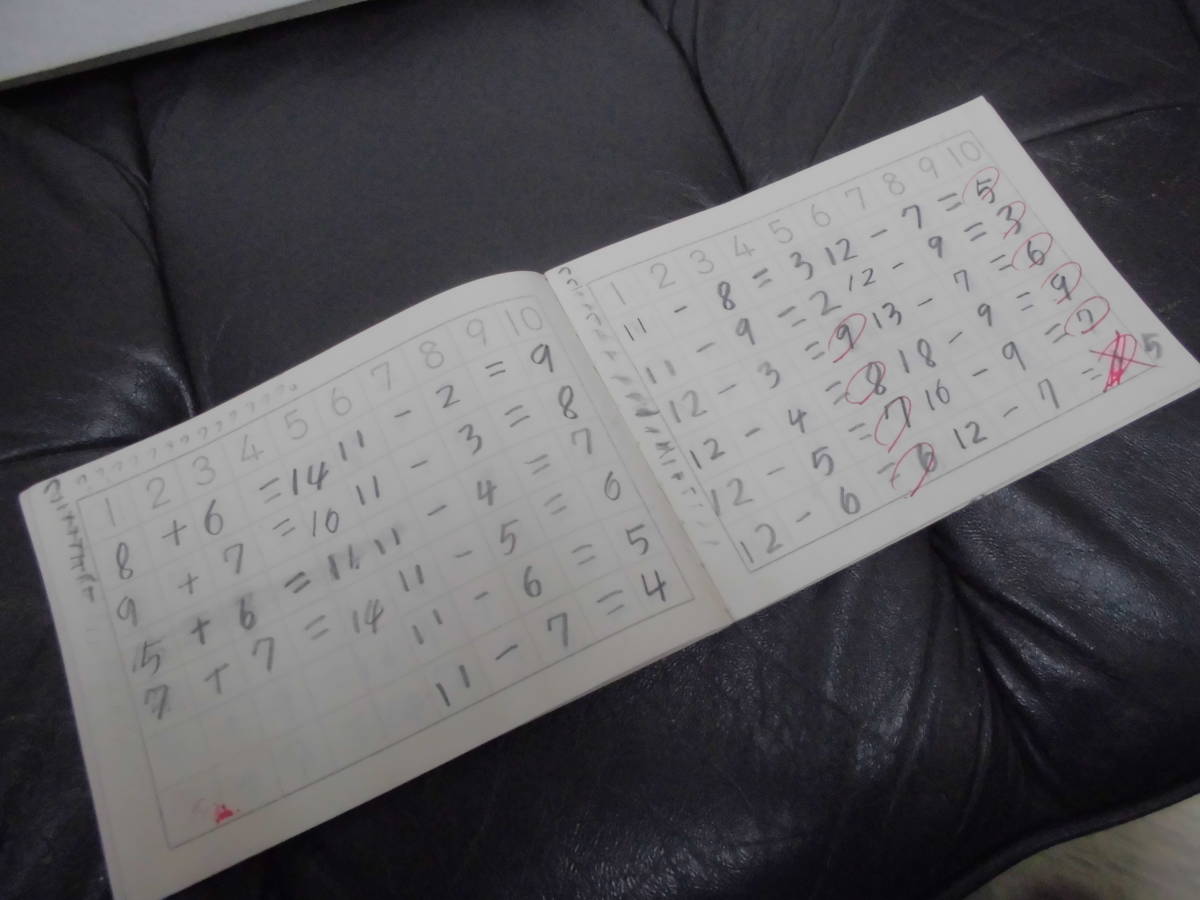 1 2 3 4 5 6 7 8 9 10
8 + 6 = 14 11 - 2 = 9
9 + 7 = 16 11 - 3 = 8
5 + 6 = 11 11 - 4 = 7
7 + 7 = 14 11 - 5 = 6
11 - 6 = 5
11 - 7 = 4
1 2 3 4 5 6 7 8 9 10
11 - 8 = 3 12 - 7 = 5
11 - 9 = 2 12 - 9 = 3
12 - 3 = 9 13 - 7 = 6
12 - 4 = 8 18 - 9 = 9
12 - 5 = 7 16 - 9 = 7
12 - 6 = 6 12 - 7 = 5